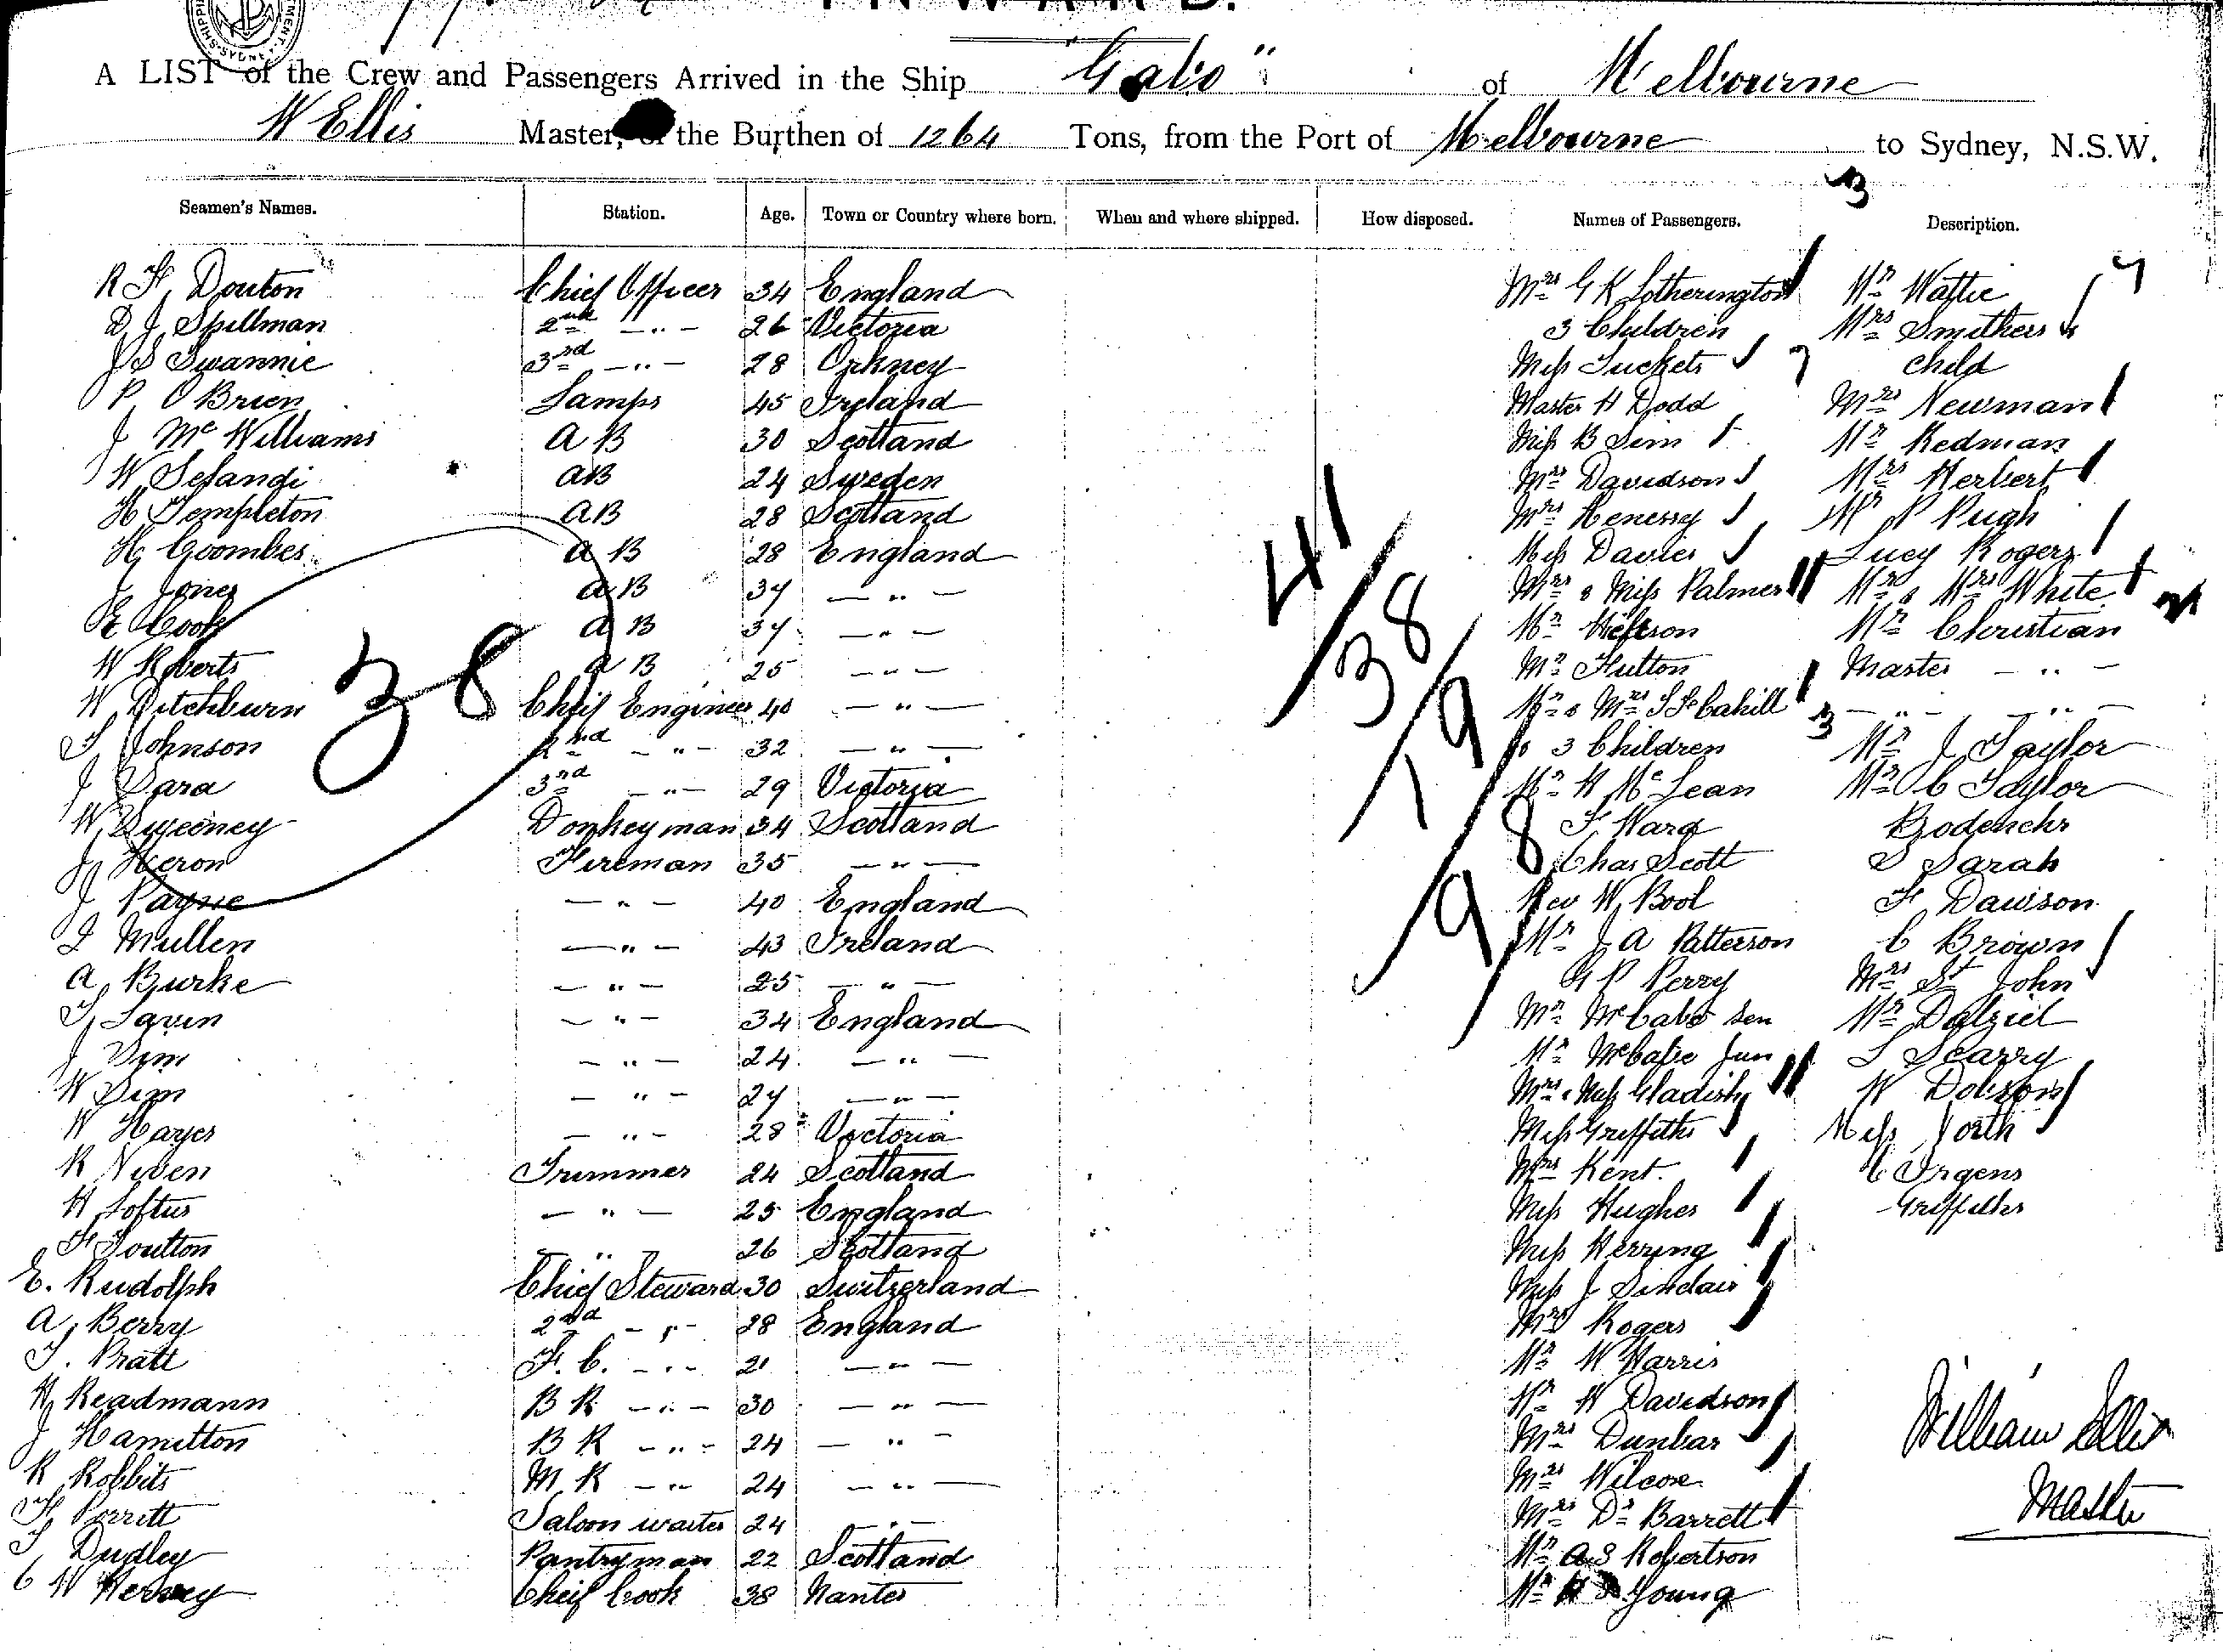 INWARD.
A LIST of the Crew and Passengers Arrived in the Ship "Gabo" of Melbourne
W Ellis Master, of the Burthen of 1264 Tons, from the Port of Melbourne to Sydney, N.S.W.
Seamen's Names. Station. Age. Town or Country where born. When and where shipped. How disposed. Names of Passengers. Description.
R H Douton Chief Officer 34 England Mrs G K Lotherington Mr Wattie
D J Spillman 2nd - " - 26 Victoria 3 Children Mrs Smithers
J S Swannie 3rd - " - 28 Orkney Miss Tuckets child
P O Brien Lamps 45 Ireland Master H Dodd Mrs Newman
J Mc Williams A B 30 Scotland Miss B Sim Mr Redman
W Sefandi AB 24 Sweden Mrs Davidson Mrs Herbert
H Templeton AB 28 Scotland Mrs Henessy Mr P Pugh
H Goombes A B 28 England Miss Davies Lucy Rogers
J Jones A B 34 - " - Mrs & Miss Palmer Mr & Mrs White
E Cook A B 34 - " - Mr Mr Christian
W Roberts A B 25 - " - Mr Hutton Master - " -
W Ditchburn Chief Engineer 40 - " - Mr & Mrs Cahill - " - - " -
T Johnson 2nd - " - 32 - " - & 3 Children Mr J Taylor
J Dara 3rd - " - 29 Victoria Mr H Mc Lean Mr C Taylor
W Sweeney Donkeyman 34 Scotland F Ward Bodenehr
J Heron Fireman 35 - " - Chas Scott D Sarah
J Payne - " - 40 England Rev W Bool F Dawson
J Mullen - " - 43 Ireland Mr J A Patterson C Brown
A Burke - " - 25 - " - G P Perry Mrs St John
T Lavin - " - 34 England Mr McCabe Sen Mr Dalziel
J Sim - " - 24 - " - Mr McCabe Jun S Scarry
W Sim - " - 24 - " - Mrs & Miss Gladish W Dobson
W Hayes - " - 28 Victoria Miss Griffiths Miss North
R Niven Trimmer 24 Scotland Mrs Kent. C Irgens
H Loftus - " - 25 England Miss Hughes Griffiths
F Toulton - " - 26 Scotland Miss Herring
E. Rudolph Chief Steward 30 Switzerland Miss J Sinclair
A Berry 2nd - " - 28 England Mrs Rogers
T. Pratt F. C. - " - 21 - " - Mr W Harris
H Readmann B R - " - 30 - " - Mr H Davidson
J Hamilton B R - " - 24 - " - Mrs Dunbar
R Robbits M R - " - 24 - " - Mrs Wilcox
H Perrett Saloon waiter 24 - " - Mrs Dr Barrett
T Dudley Pantryman 22 Scotland Mr A S Robertson
C W Hervey Cheif Cook 38 Nantes Mr Young
38
41
38
19
98
William Ellis
Master